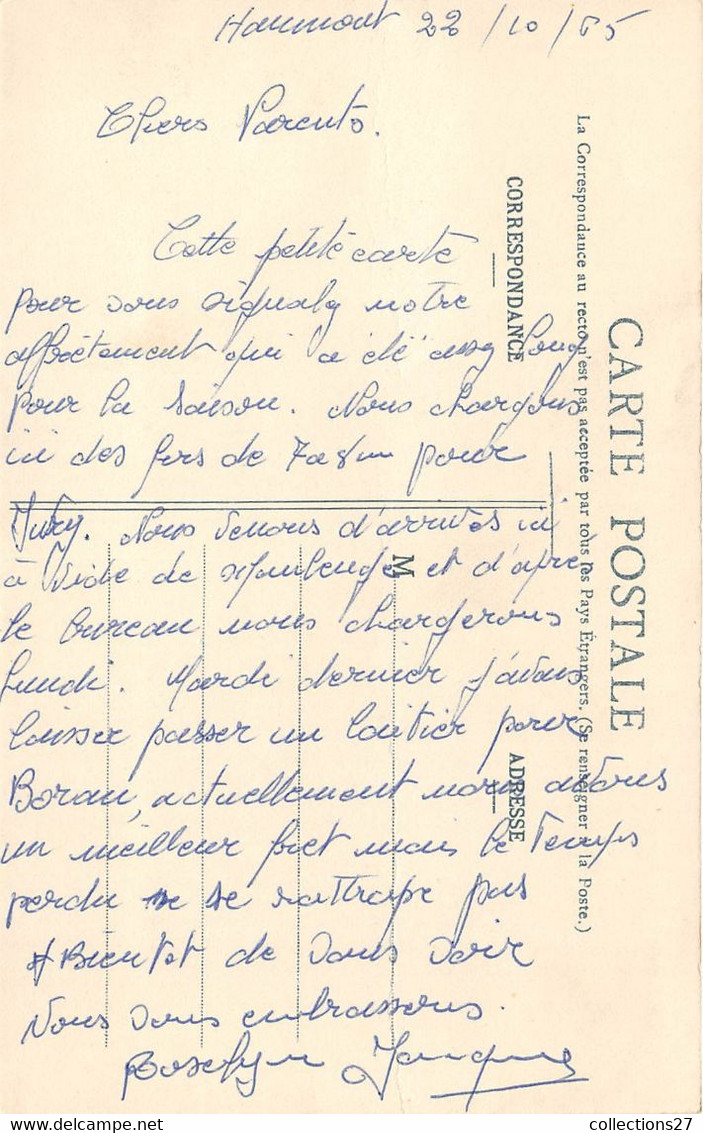 Haumont 22/10/65
Chers Parents.
Cette petite carte
pour vous signaler notre
affrètement qui a été assez long
pour la saison. Nous chargons
ici des fers de 7 a 8 m pour
Ivry. Nous venons d'arrivés ici
à vide de Maubeuge et d'apre
le bureau nous chargerons
lundi. Mardi dernier j'avais
laisser passer un laitier pour
Boran, actuellement nous avons
un meilleur fret mais le temps
perdu ne se rattrape pas
A Bientot de vous voir
Nous vous embrassons.
Jacques
CARTE POSTALE
La Correspondance au recto n'est pas acceptée par tous les Pays Étrangers. (Se renseigner à la Poste.)
CORRESPONDANCE
ADRESSE
M
collections27